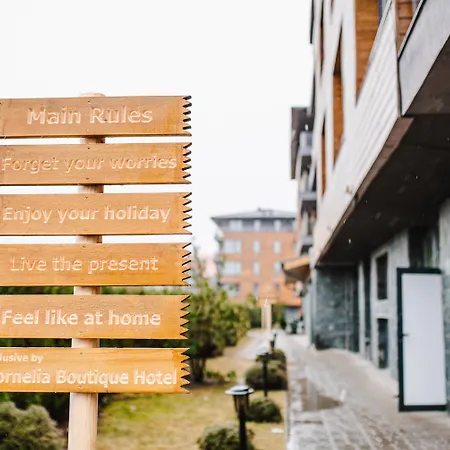 Main Rules
Forget your worries
Enjoy your holiday
Live the present
Feel like at home
clusive by
ornelia Boutique Hotel